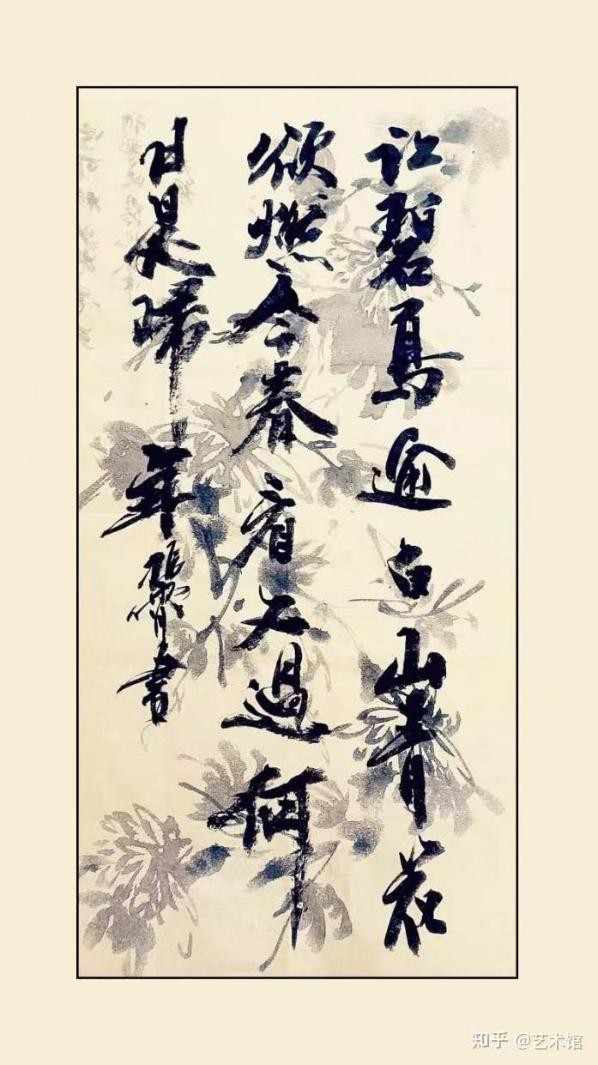 江碧鳥逾白山青花
欲燃今春看又過何
日是歸年 張書
知乎 @艺术馆